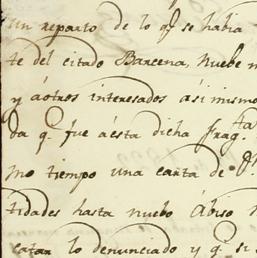 un reparto de lo q.e se havia
te del citado Barcena, Nuebe
y áotros interesados ási mismo
da q.e fue áésta dicha frag.ta
mo tiempo una carta de
tidades hasta nuebo Abiso
catar lo denunciado y q.e si